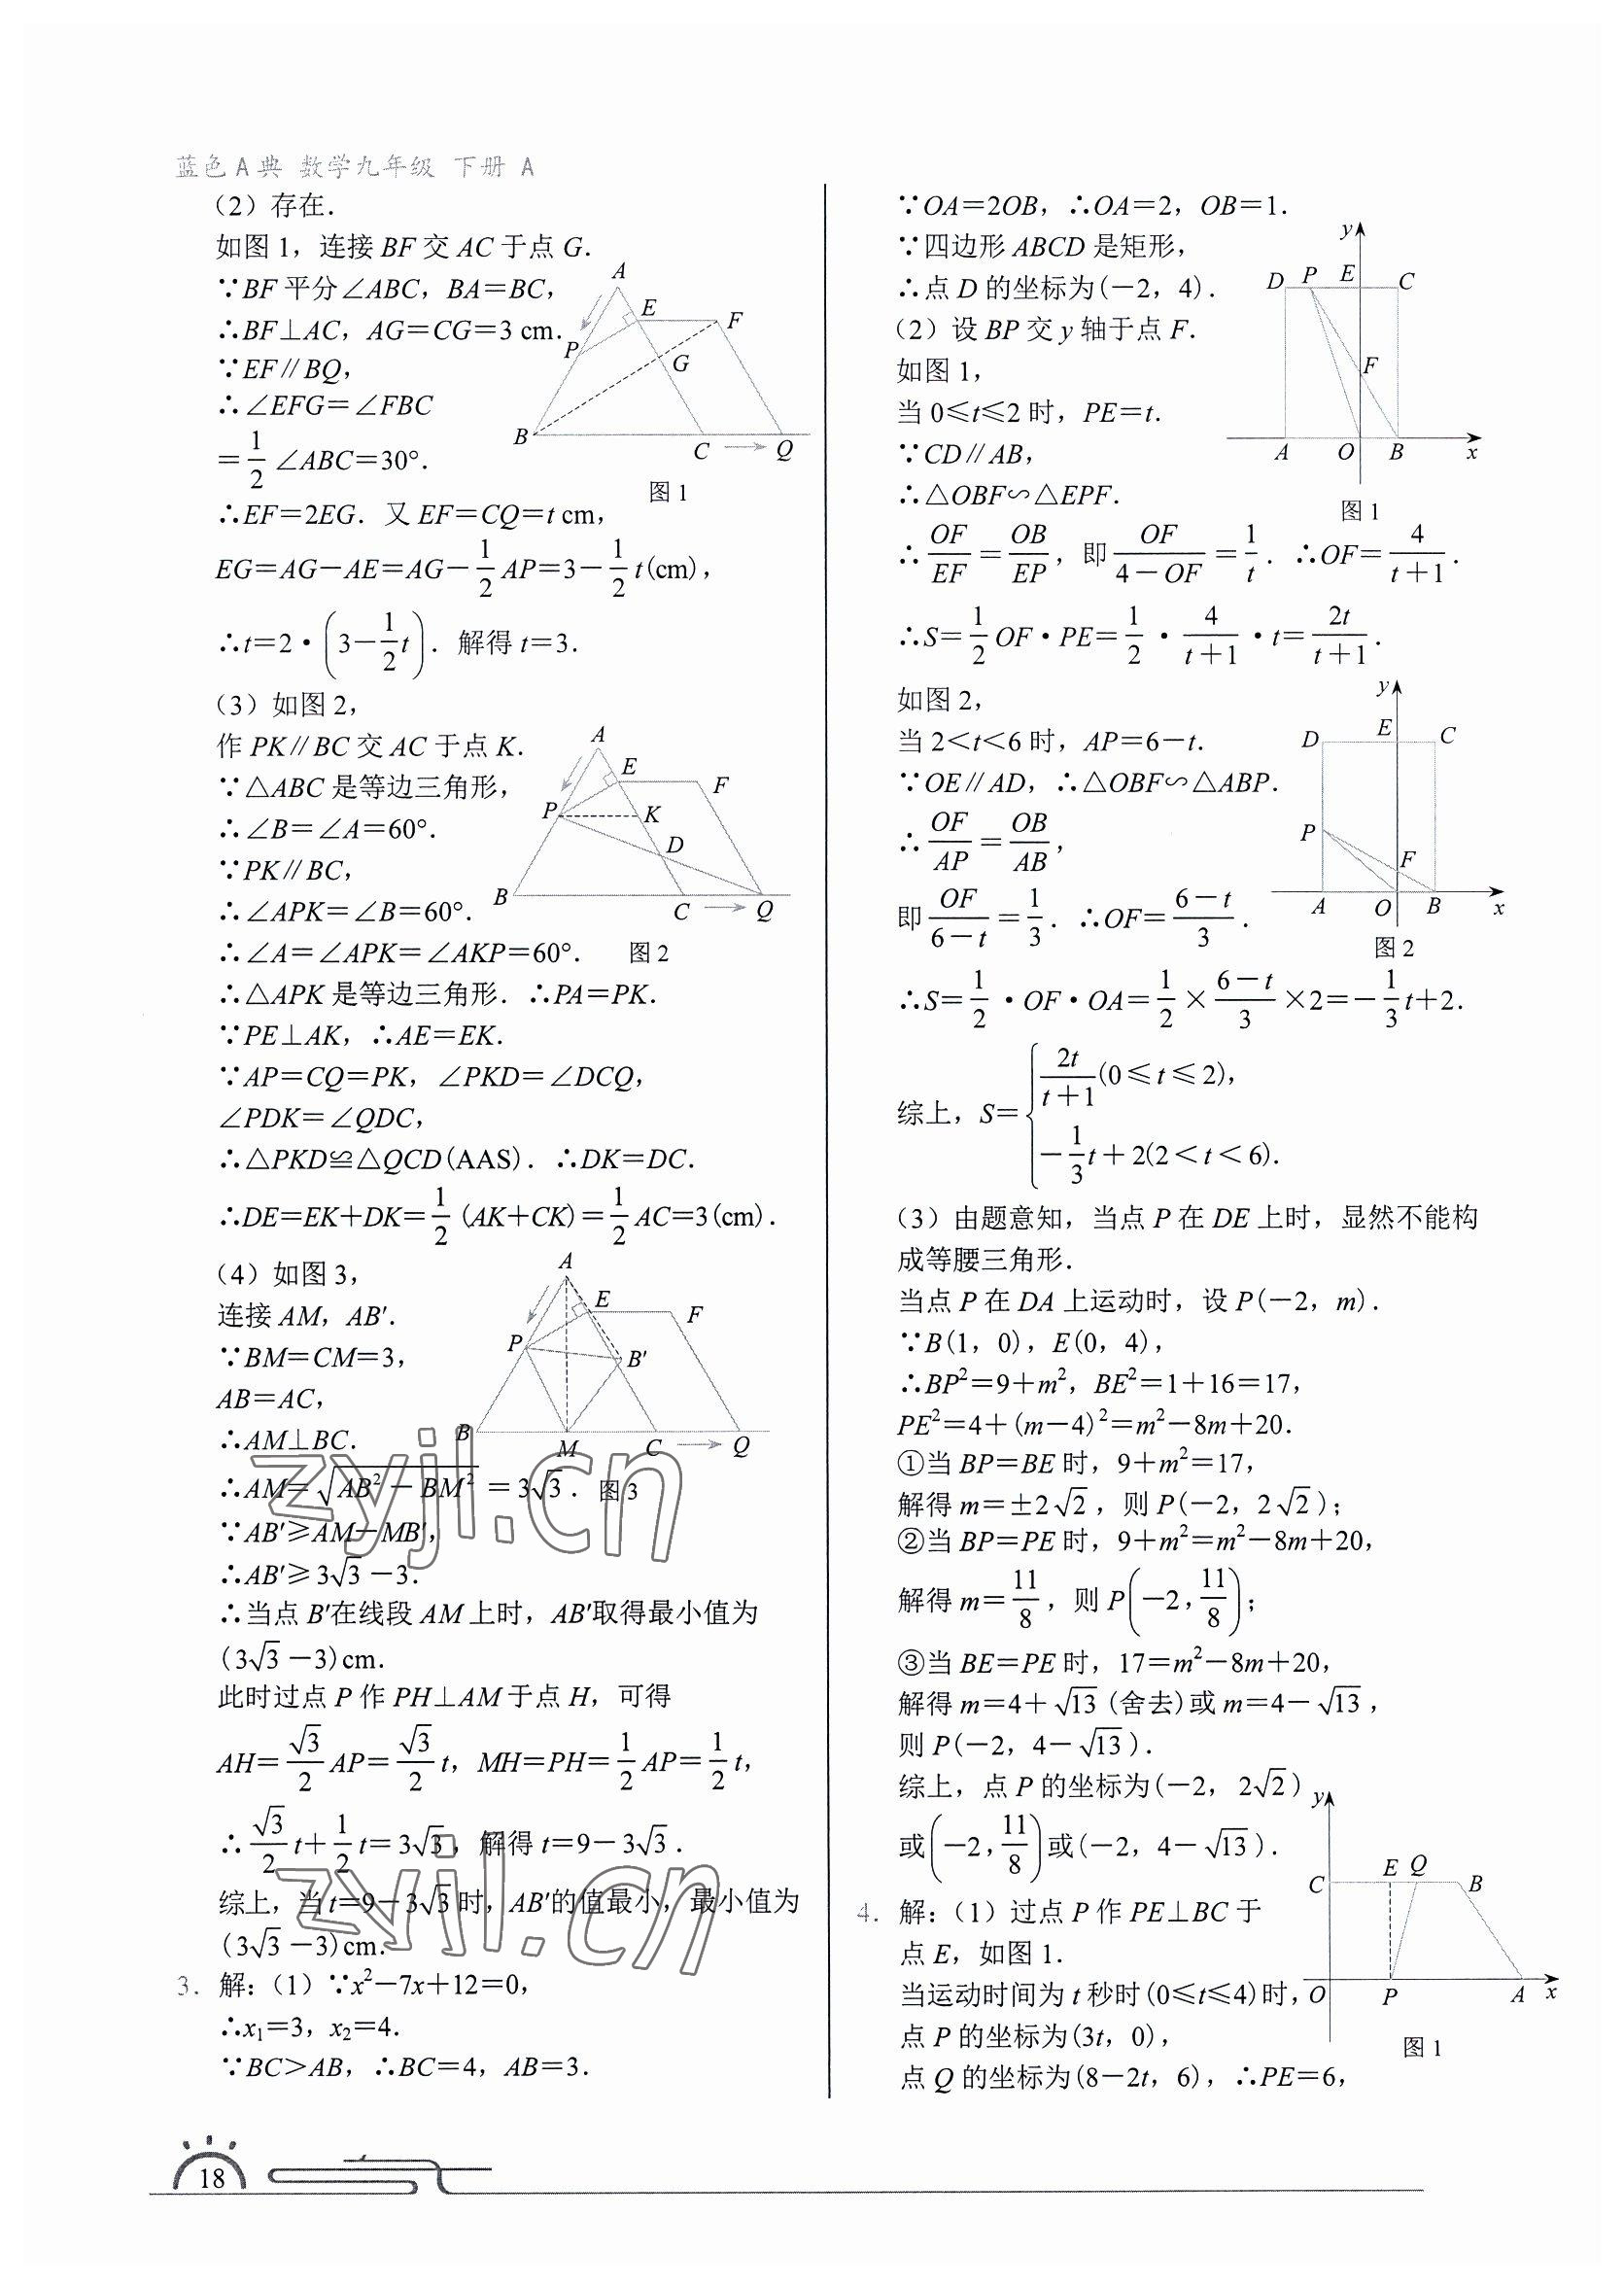 蓝色 A 典 数学九年级 下册 A
(2)存在.
如图 1，连接 BF 交 AC 于点 G.
∵BF 平分∠ABC，BA=BC，
∴BF⊥AC，AG=CG=3 cm.
∵EF∥BQ，
∴∠EFG=∠FBC
=1/2 ∠ABC=30°.
A
E
F
P
G
B
C
Q
图 1
∴EF=2EG. 又 EF=CQ=t cm，
EG=AG-AE=AG-1/2 AP=3-1/2 t(cm)，
∴t=2·(3-1/2 t). 解得 t=3.
(3)如图 2，
作 PK∥BC 交 AC 于点 K.
∵△ABC 是等边三角形，
∴∠B=∠A=60°.
∵PK∥BC，
∴∠APK=∠B=60°.
∴∠A=∠APK=∠AKP=60°.
A
E
F
P
K
D
B
C
Q
图 2
∴△APK 是等边三角形. ∴PA=PK.
∵PE⊥AK，∴AE=EK.
∵AP=CQ=PK，∠PKD=∠DCQ，
∠PDK=∠QDC，
∴△PKD≌△QCD(AAS). ∴DK=DC.
∴DE=EK+DK=1/2 (AK+CK)=1/2 AC=3(cm).
(4)如图 3，
连接 AM，AB′.
∵BM=CM=3，
AB=AC，
∴AM⊥BC.
∴AM=√(AB²-BM²)=3√3.
A
E
F
P
B′
B
M
C
Q
图 3
∵AB′≥AM-MB′，
∴AB′≥3√3-3.
∴当点 B′在线段 AM 上时，AB′取得最小值为
(3√3-3)cm.
此时过点 P 作 PH⊥AM 于点 H，可得
AH=√3/2 AP=√3/2 t，MH=PH=1/2 AP=1/2 t，
∴√3/2 t+1/2 t=3√3，解得 t=9-3√3.
综上，当 t=9-3√3时，AB′的值最小，最小值为
(3√3-3)cm.
3. 解:(1)∵x²-7x+12=0，
∴x₁=3，x₂=4.
∵BC>AB，∴BC=4，AB=3.
∵OA=2OB，∴OA=2，OB=1.
∵四边形 ABCD 是矩形，
∴点 D 的坐标为(-2，4).
(2)设 BP 交 y 轴于点 F.
如图 1，
当 0≤t≤2 时，PE=t.
∵CD∥AB，
∴△OBF∽△EPF.
y
D
P
E
C
F
A
O
B
x
图 1
∴OF/EF=OB/EP，即OF/(4-OF)=1/t. ∴OF=4/(t+1).
∴S=1/2 OF·PE=1/2·4/(t+1)·t=2t/(t+1).
如图 2，
当 2<t<6 时，AP=6-t.
∵OE∥AD，∴△OBF∽△ABP.
∴OF/AP=OB/AB，
即OF/(6-t)=1/3. ∴OF=(6-t)/3.
y
D
E
C
P
F
A
O
B
x
图 2
∴S=1/2·OF·OA=1/2×(6-t)/3×2=-1/3 t+2.
综上，S={2t/(t+1)(0≤t≤2)，
-1/3 t+2(2<t<6).
(3)由题意知，当点 P 在 DE 上时，显然不能构
成等腰三角形.
当点 P 在 DA 上运动时，设 P(-2，m).
∵B(1，0)，E(0，4)，
∴BP²=9+m²，BE²=1+16=17，
PE²=4+(m-4)²=m²-8m+20.
①当 BP=BE 时，9+m²=17，
解得 m=±2√2，则 P(-2，2√2);
②当 BP=PE 时，9+m²=m²-8m+20，
解得 m=11/8，则 P(-2，11/8);
③当 BE=PE 时，17=m²-8m+20，
解得 m=4+√13(舍去)或 m=4-√13，
则 P(-2，4-√13).
综上，点 P 的坐标为(-2，2√2)
或(-2，11/8)或(-2，4-√13).
4. 解:(1)过点 P 作 PE⊥BC 于
点 E，如图 1.
当运动时间为 t 秒时(0≤t≤4)时，
点 P 的坐标为(3t，0)，
点 Q 的坐标为(8-2t，6)，∴PE=6，
y
C
E
Q
B
O
P
A
x
图 1
zyjl.cn
zyjl.cn
18